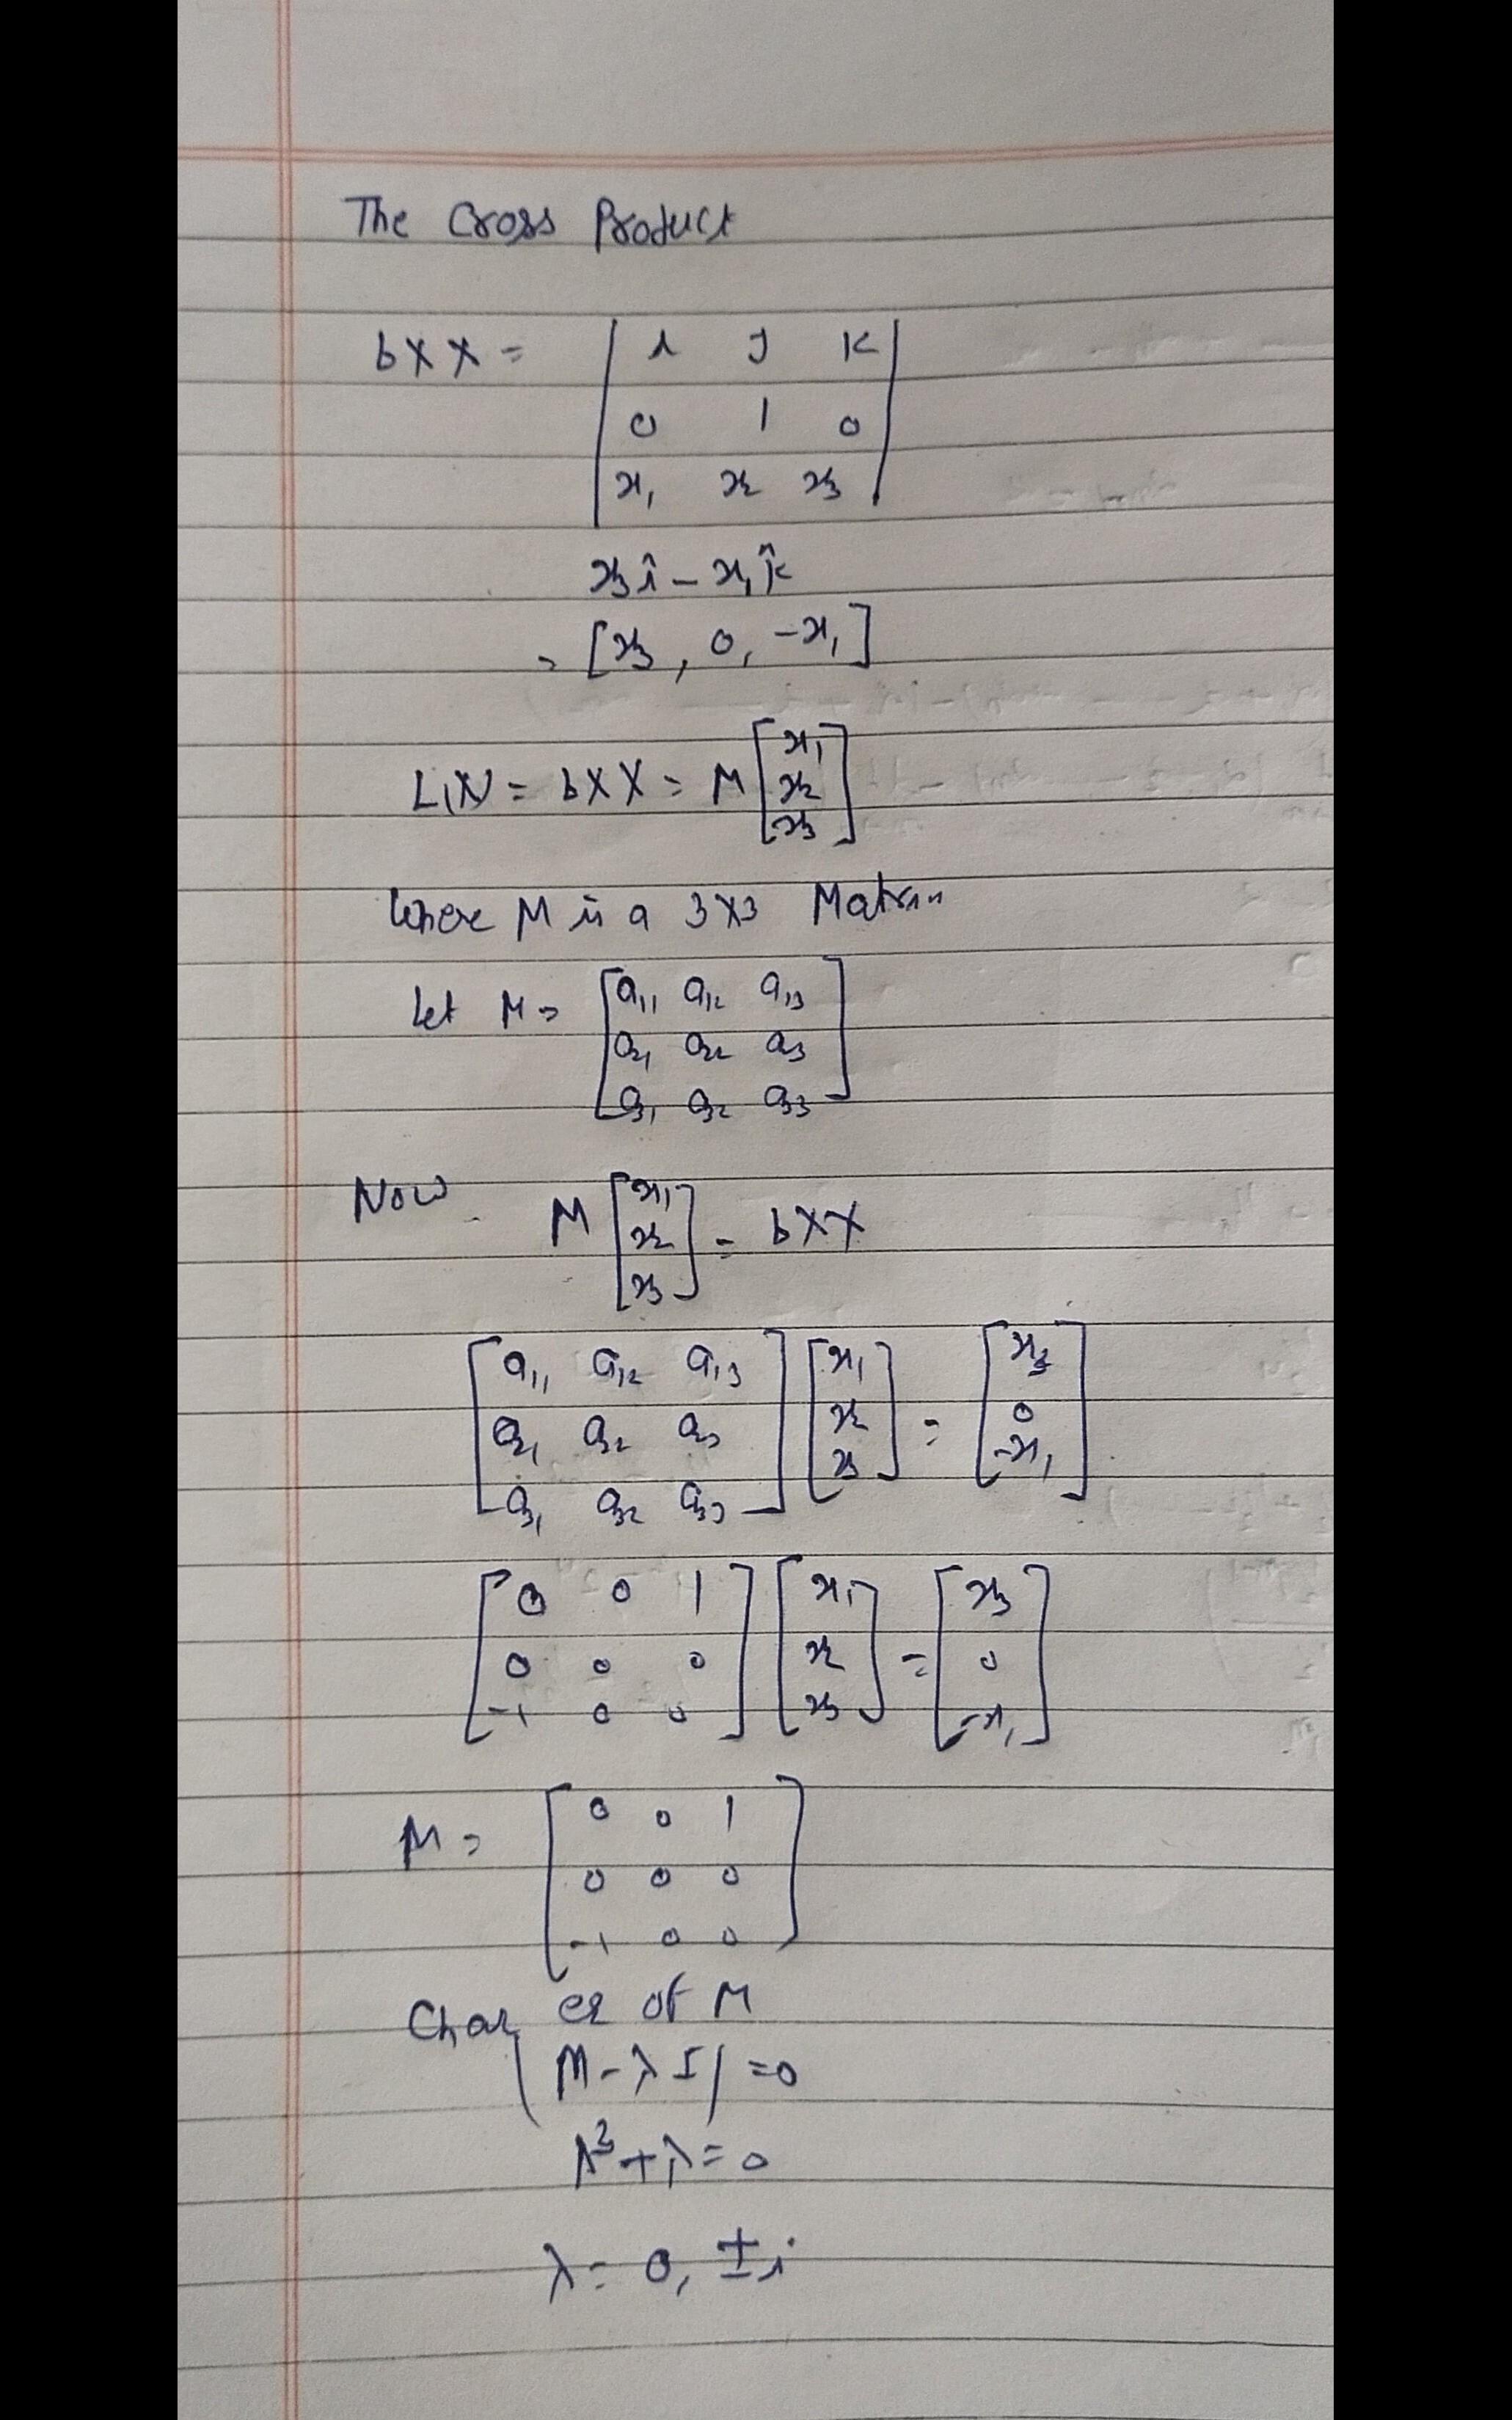 The Cross Product
b X X = | i j k |
| 0 1 0 |
| x₁ x₂ x₃ |
x₃î - x₁k̂
= [x₃, 0, -x₁]
L(X) = b X X = M [x₁
x₂
x₃]
Where M is a 3X3 Matrix
Let M = [a₁₁ a₁₂ a₁₃
a₂₁ a₂₂ a₂₃
a₃₁ a₃₂ a₃₃]
Now M [x₁
x₂
x₃] = b X X
[a₁₁ a₁₂ a₁₃] [x₁] = [x₃]
[a₂₁ a₂₂ a₂₃] [x₂] = [0]
[a₃₁ a₃₂ a₃₃] [x₃] = [-x₁]
[0 0 1] [x₁] = [x₃]
[0 0 0] [x₂] = [0]
[-1 0 0] [x₃] = [-x₁]
M = [0 0 1
0 0 0
-1 0 0]
Char eq of M
|M - λI| = 0
λ³ + λ = 0
λ = 0, ±i